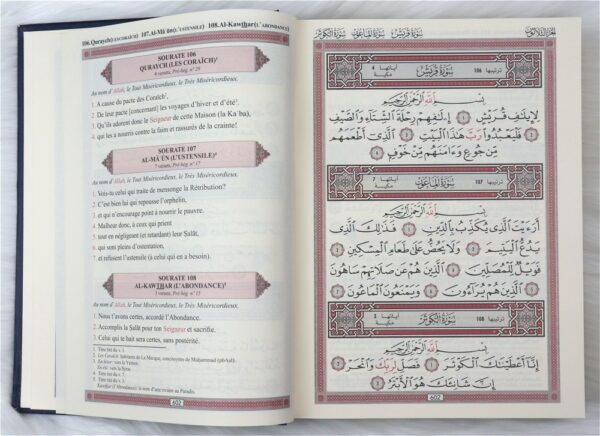 106.Quraych(LES CORAÏCH) 107.Al-Mâ'ûn(L'USTENSILE) 108.Al-Kawthar(L'ABONDANCE)
SOURATE 106
QURAYCH (LES CORAÏCH)
4 versets, Pré-hég. n° 29
Au nom d'Allah, le Tout Miséricordieux, le Très Miséricordieux.
1. A cause du pacte des Coraïch¹,
2. De leur pacte [concernant] les voyages d'hiver et d'été².
3. Qu'ils adorent donc le Seigneur de cette Maison (la Ka'ba),
4. qui les a nourris contre la faim et rassurés de la crainte!
SOURATE 107
AL-MÂ'ÛN (L'USTENSILE)³
7 versets, Pré-hég. n° 17
Au nom d'Allah, le Tout Miséricordieux, le Très Miséricordieux.
1. Vois-tu celui qui traite de mensonge la Rétribution?
2. C'est bien lui qui repousse l'orphelin,
3. et qui n'encourage point à nourrir le pauvre.
4. Malheur donc, à ceux qui prient
5. tout en négligeant (et retardant) leur Salât,
6. qui sont pleins d'ostentation,
7. et refusent l'ustensile (à celui qui en a besoin).
SOURATE 108
AL-KAWTHAR (L'ABONDANCE)
3 versets, Pré-hég. n° 15
Au nom d'Allah, le Tout Miséricordieux, le Très Miséricordieux.
1. Nous t'avons certes, accordé l'Abondance.
2. Accomplis la Salât pour ton Seigneur et sacrifie.
3. Celui qui te hait sera certes, sans postérité.
1. Titre tiré du v. 1.
Les Coraïch: habitants de La Mecque, concitoyens de Muhammad (pbAsl).
2. En hiver: vers le Yémen.
En été: vers la Syrie.
3. Titre tiré du v. 7.
Titre tiré du v. 1.
602
الجزء الثلاثون سورة قريش سورة الماعون سورة الكوثر
ترتيبها 106 سورة قريش آياتها 4 مكية
بسم الله الرحمن الرحيم
لِإِيلَٰفِ قُرَيْشٍ ١ إِۦلَٰفِهِمْ رِحْلَةَ ٱلشِّتَآءِ وَٱلصَّيْفِ
٢ فَلْيَعْبُدُوا۟ رَبَّ هَٰذَا ٱلْبَيْتِ ٣ ٱلَّذِىٓ أَطْعَمَهُم
مِّن جُوعٍ وَءَامَنَهُم مِّنْ خَوْفٍ ٤
ترتيبها 107 سورة الماعون آياتها 7 مكية
بسم الله الرحمن الرحيم
أَرَءَيْتَ ٱلَّذِى يُكَذِّبُ بِٱلدِّينِ ١ فَذَٰلِكَ ٱلَّذِى
يَدُعُّ ٱلْيَتِيمَ ٢ وَلَا يَحُضُّ عَلَىٰ طَعَامِ ٱلْمِسْكِينِ ٣
فَوَيْلٌ لِّلْمُصَلِّينَ ٤ ٱلَّذِينَ هُمْ عَن صَلَاتِهِمْ سَاهُونَ
٥ ٱلَّذِينَ هُمْ يُرَآءُونَ ٦ وَيَمْنَعُونَ ٱلْمَاعُونَ ٧
ترتيبها 108 سورة الكوثر آياتها 3 مكية
بسم الله الرحمن الرحيم
إِنَّآ أَعْطَيْنَٰكَ ٱلْكَوْثَرَ ١ فَصَلِّ لِرَبِّكَ وَٱنْحَرْ
٢ إِنَّ شَانِئَكَ هُوَ ٱلْأَبْتَرُ ٣
602